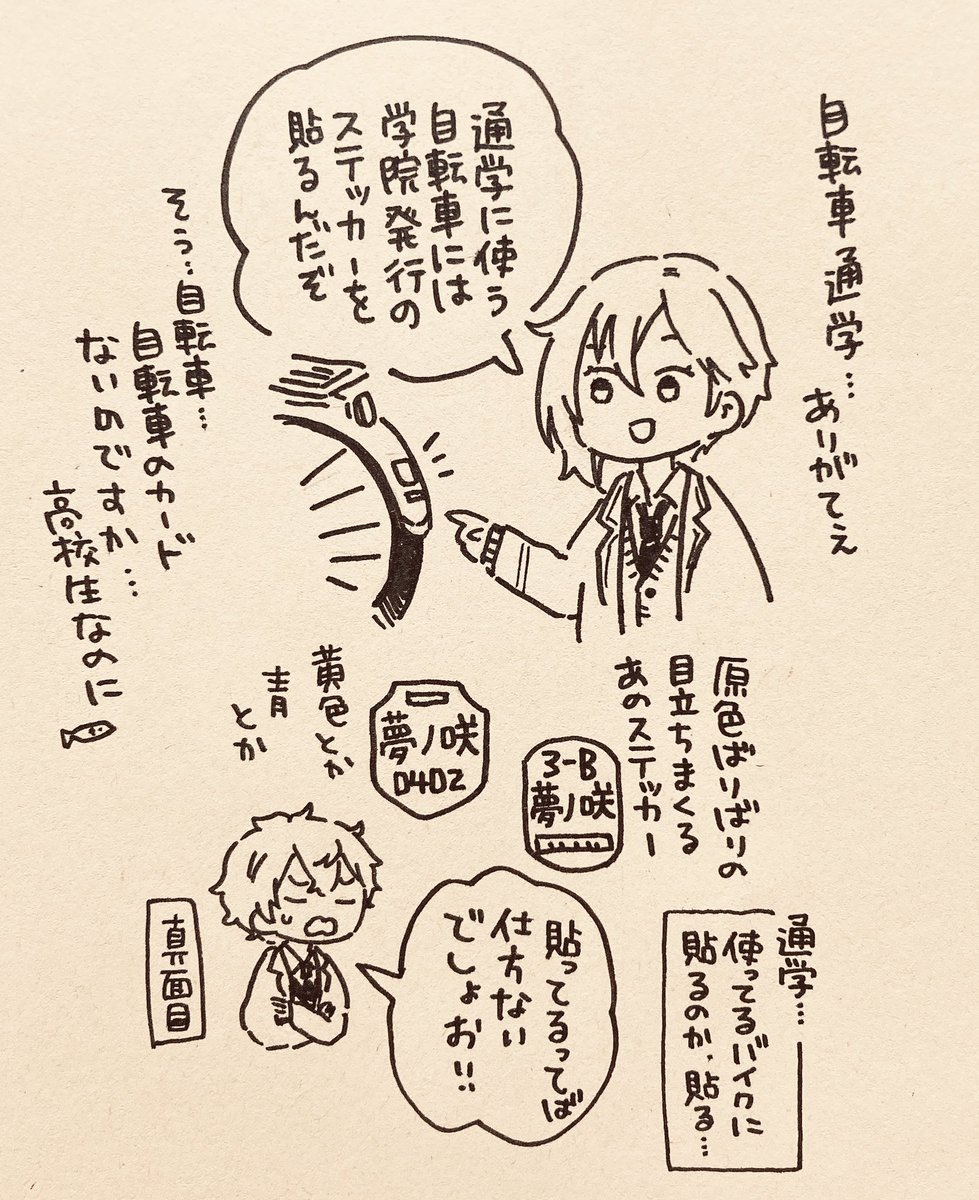 自転車通学…ありがてぇ
通学に使う
自転車には
学院発行の
ステッカーを
貼るんだぞ
そう…自転車…
自転車のカード
ないのですか…
高校生なのに
原色ばりばりの
目立ちまくる
あのステッカー
3-B
夢ノ咲
夢ノ咲
0402
黄色とか
青
とか
通学…
使ってるバイクに
貼るのか、貼る…
貼ってるってば
仕方ない
でしょお!!
真面目